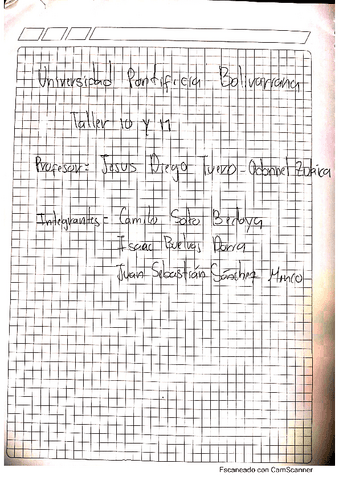 Universidad Pontificia Bolivariana
Taller 10 y 11
Profesor: Jesus Diego Tuero
Integrantes: Camilo Soto Bedoya
Isaac Buelvas
Juan Sebastián Sánchez
Escaneado con CamScanner